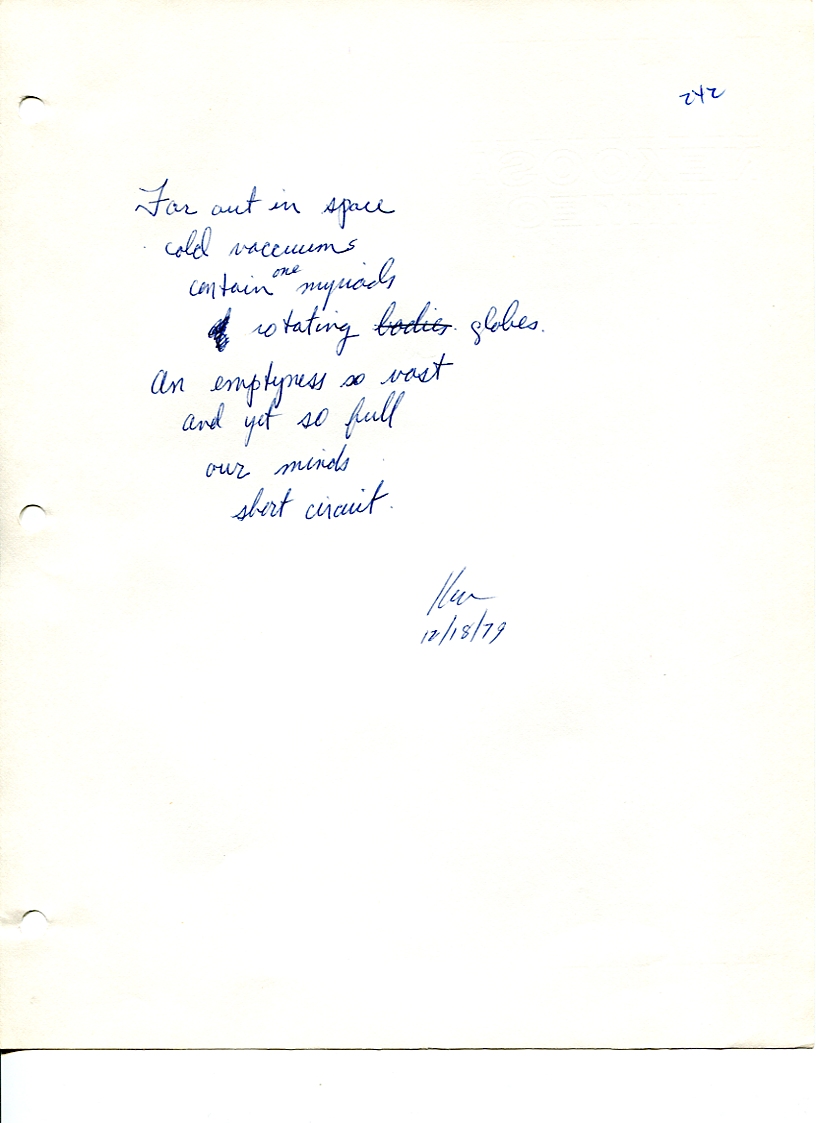 242
Far out in space
cold vaccuums
contain one myriads
rotating bodies globes.
An emptyness so vast
and yet so full
our minds
short circuit.
Ken
12/18/79